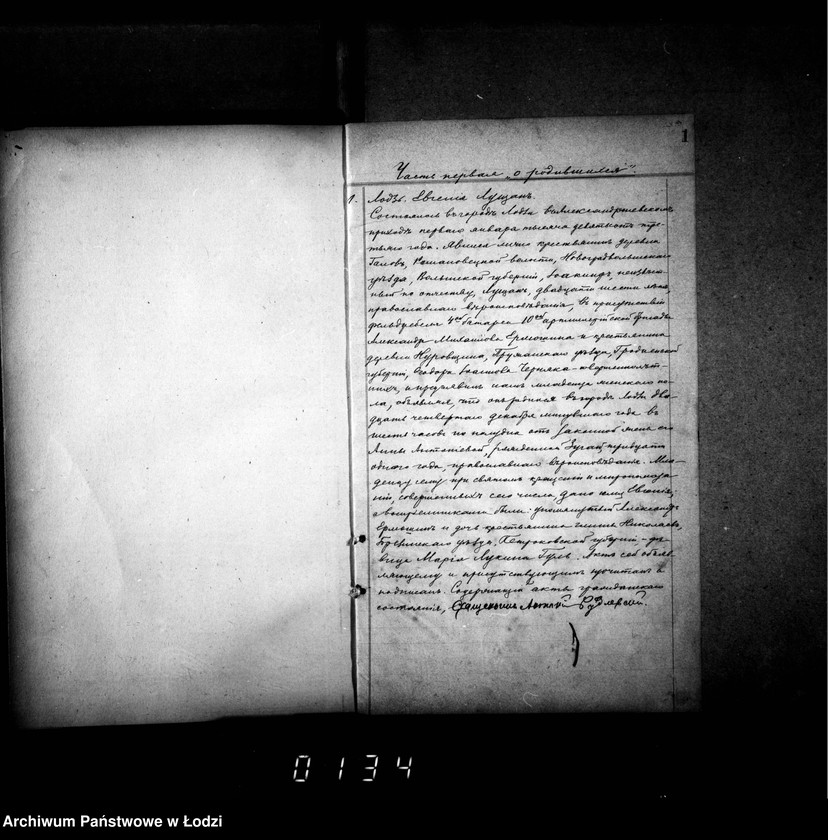 1
Часть первая „о родившихся".
1. Лодзь. Евгенія Лущан.
Состоялось въ городѣ Лодзи въ Александроневскомъ
приходѣ перваго января тысяча девятьсотъ тре-
тьяго года. Явился лично крестьянинъ деревни
волости, Новоградволынскаго
уѣзда, Волынской губерніи, неизвѣст-
ный по отчеству, Лущанъ, двадцати шести лѣтъ,
православнаго вѣроисповѣданія, въ присутствіи
фельдфебеля 4ой батареи 10ой артиллерійской бригады
Александра Михайлова Ермошина и крестьянина
деревни Пружанскаго уѣзда, Гродненской
губерніи, Ѳедора Черняка - совершеннолѣт-
нихъ, и предъявилъ намъ младенца женскаго по-
ла, объявляя, что онъ родился въ городѣ Лодзи два-
дцать четвертаго декабря минувшаго года въ
шесть часовъ по полудни отъ законной жены его
Анны Антоновой, рожденной тридцати
одного года, православнаго вѣроисповѣданія. Мла-
денцу сему при святомъ крещеніи и миропомаза-
ніи, совершенныхъ сего числа, дано имя Евгенія,
а воспріемниками были: упомянутый Александръ
Ермошинъ и дочь крестьянина гмины Николаевъ,
Брезинскаго уѣзда, Петроковской губерніи - дѣ-
вица Марія Лукина Гуль. Актъ сей объяв-
ляющему и присутствующимъ прочитанъ и
подписанъ. Содержащій акты гражданскаго
состоянія, Священникъ Рудлевскій.
0134
Archiwum Państwowe w Łodzi